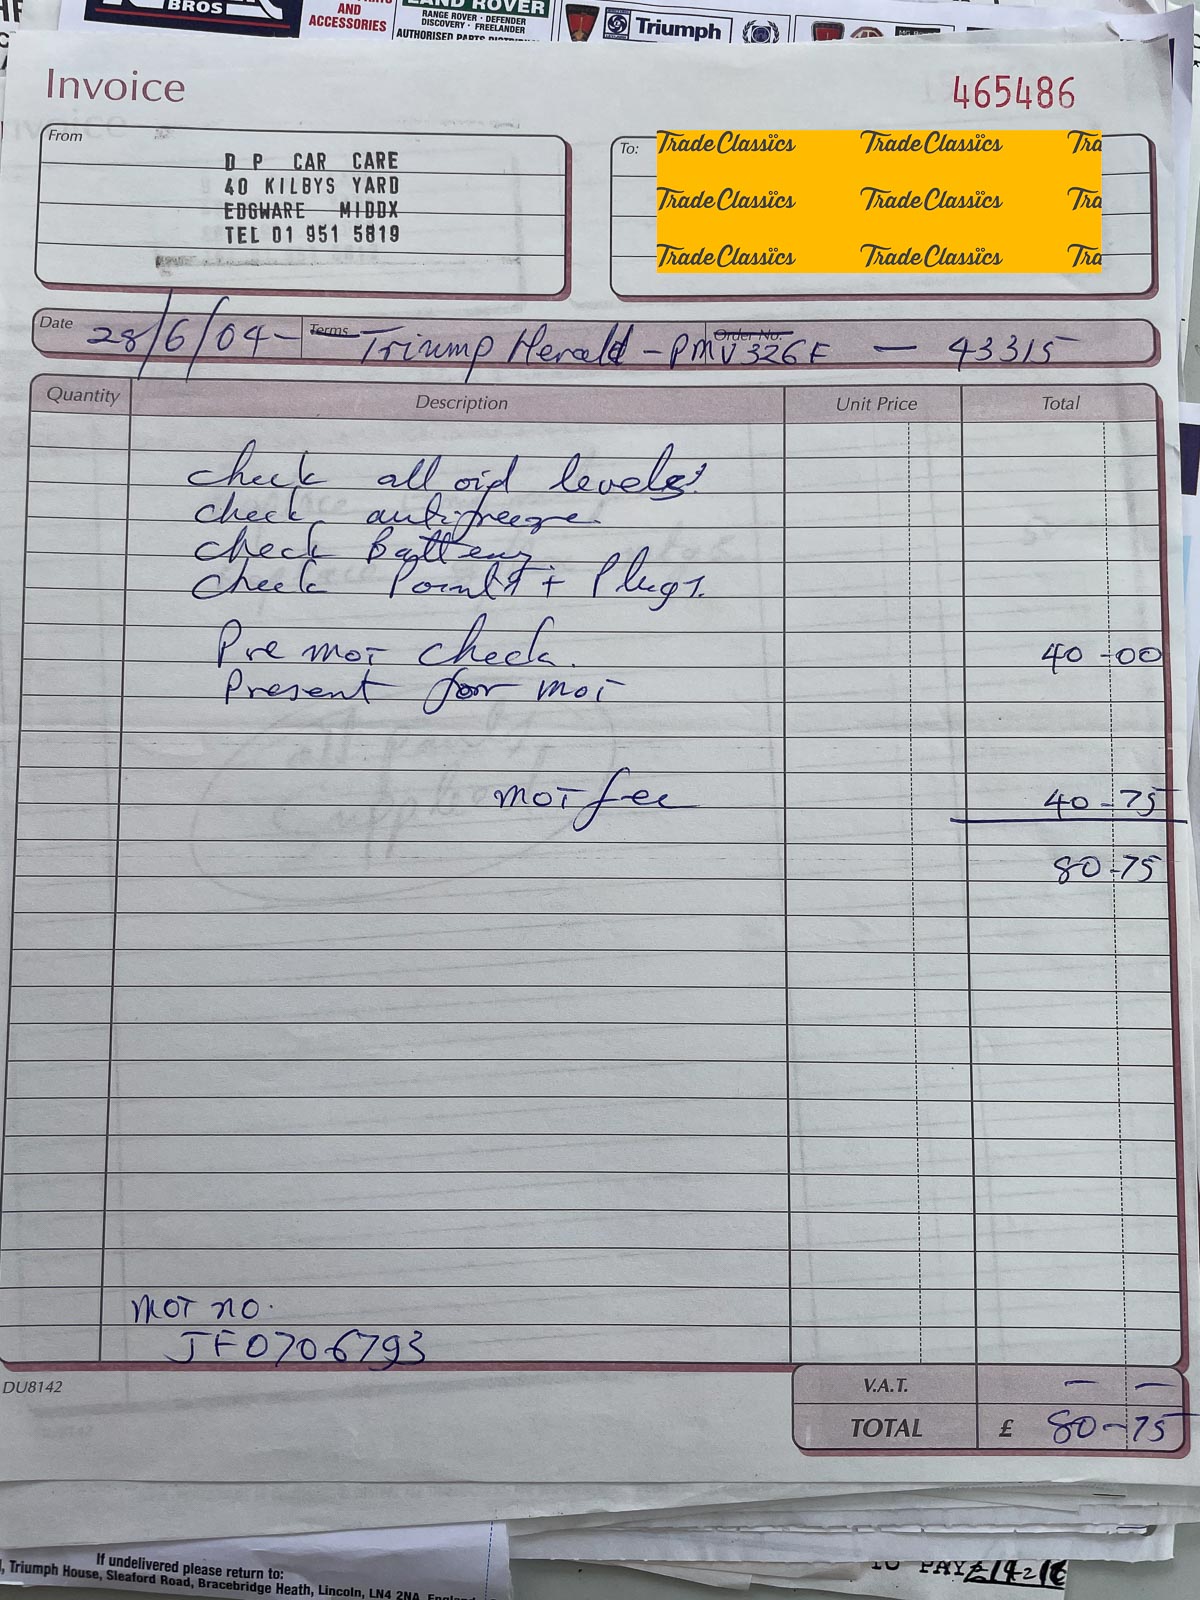 BROS
AND
ACCESSORIES
LAND ROVER
RANGE ROVER · DEFENDER
DISCOVERY · FREELANDER
AUTHORISED PARTS
Triumph
Invoice
465486
From
D P CAR CARE
40 KILBYS YARD
EDGWARE MIDDX
TEL 01 951 5819
To:
Trade Classics Trade Classics Tra
Trade Classics Trade Classics Tra
Trade Classics Trade Classics Tra
Date 28/6/04 - Terms Triump Herald - PMV 326F - 43315
Order No.
Quantity Description Unit Price Total
check all oil levels.
check antifreeze.
check Battery.
check Points + Plugs.
Pre MOT check. 40-00
Present for MOT
MOT fee 40-75
80-75
MOT no.
JF0706793
DU8142
V.A.T. — —
TOTAL £ 80-75
If undelivered please return to:
Triumph House, Sleaford Road, Bracebridge Heath, Lincoln, LN4 2NA,
TO PAY